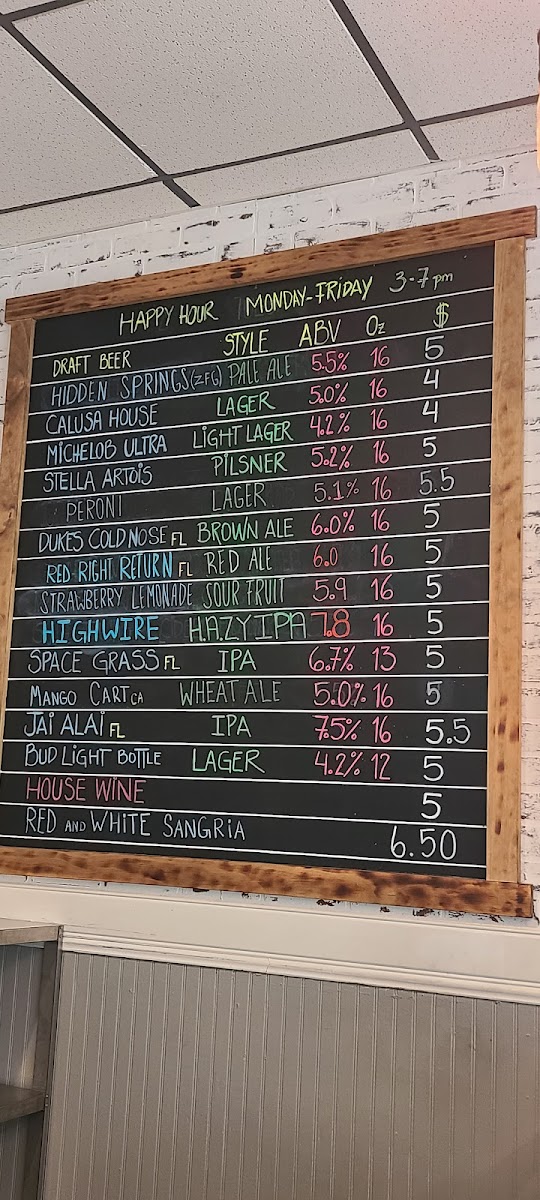 HAPPY HOUR MONDAY-FRIDAY 3-7 pm
DRAFT BEER STYLE ABV Oz $
HIDDEN SPRINGS (ZFG) PALE ALE 5.5% 16 5
CALUSA HOUSE LAGER 5.0% 16 4
MICHELOB ULTRA LIGHT LAGER 4.2% 16 4
STELLA ARTOIS PILSNER 5.2% 16 5
PERONI LAGER 5.1% 16 5.5
DUKES COLD NOSE FL BROWN ALE 6.0% 16 5
RED RIGHT RETURN FL RED ALE 6.0 16 5
STRAWBERRY LEMONADE SOUR FRUIT 5.9 16 5
HIGHWIRE HAZY IPA 7.8 16 5
SPACE GRASS FL IPA 6.7% 13 5
MANGO CART CA WHEAT ALE 5.0% 16 5
JAI ALAI FL IPA 7.5% 16 5.5
BUD LIGHT BOTTLE LAGER 4.2% 12 5
HOUSE WINE 5
RED AND WHITE SANGRIA 6.50